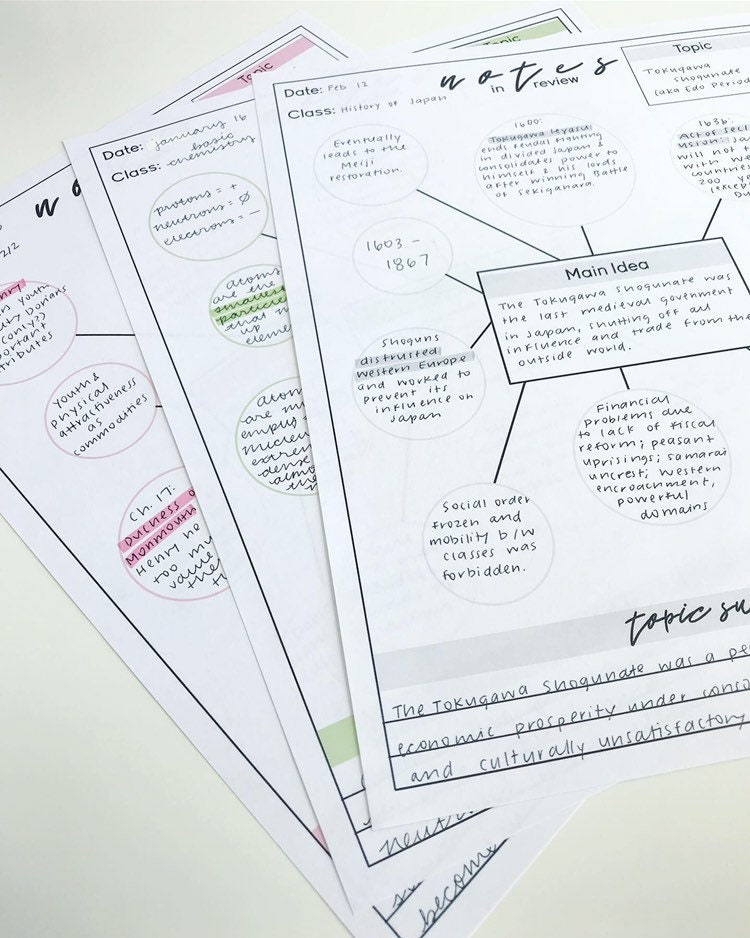 notes
in review
Date: Feb 12
Class: History of Japan
Topic
Tokugawa
Shogunate
(aka Edo Period
Eventually
leads to the
Meiji
restoration.
1600:
Tokugawa Ieyasu
ends feudal fighting
in divided Japan &
consolidates power to
himself & his lords
after winning Battle
of Sekigahara.
1636:
Act of Secl
usion: Ja
will not t
with w
countrie
200 ye
(excep
Du
1603 -
1867
Main Idea
The Tokugawa Shogunate was
the last medieval govenment
in Japan, shutting off all
influence and trade from the
outside world.
Shoguns
distrusted
Western Europe
and worked to
prevent its
influence on
Japan
Financial
problems due
to lack of fiscal
reform; peasant
uprisings; samarai
uncrest; Western
encroachment,
powerful
domains
Social order
frozen and
mobility b/w
classes was
forbidden.
topic su
The Tokugawa Shogunate was a pe
economic prosperity under conso
and culturally unsatisfactory
Topic
Date: January 16
Class: basic
chemistry
protons = +
neutrons = Ø
electrons = -
atoms
are the
smalles
particle
that m
up
eleme
atom
are m
empty =
extrem
dense
almo
the
neutr
Topic
no
2/2
enry
youth
Dorians
(only?)
portant
tributes
youth &
physical
attractiveness
as
commodities
Ch. 17:
Duchess o
Monmouth
Henry ha
too mu
value
the
become